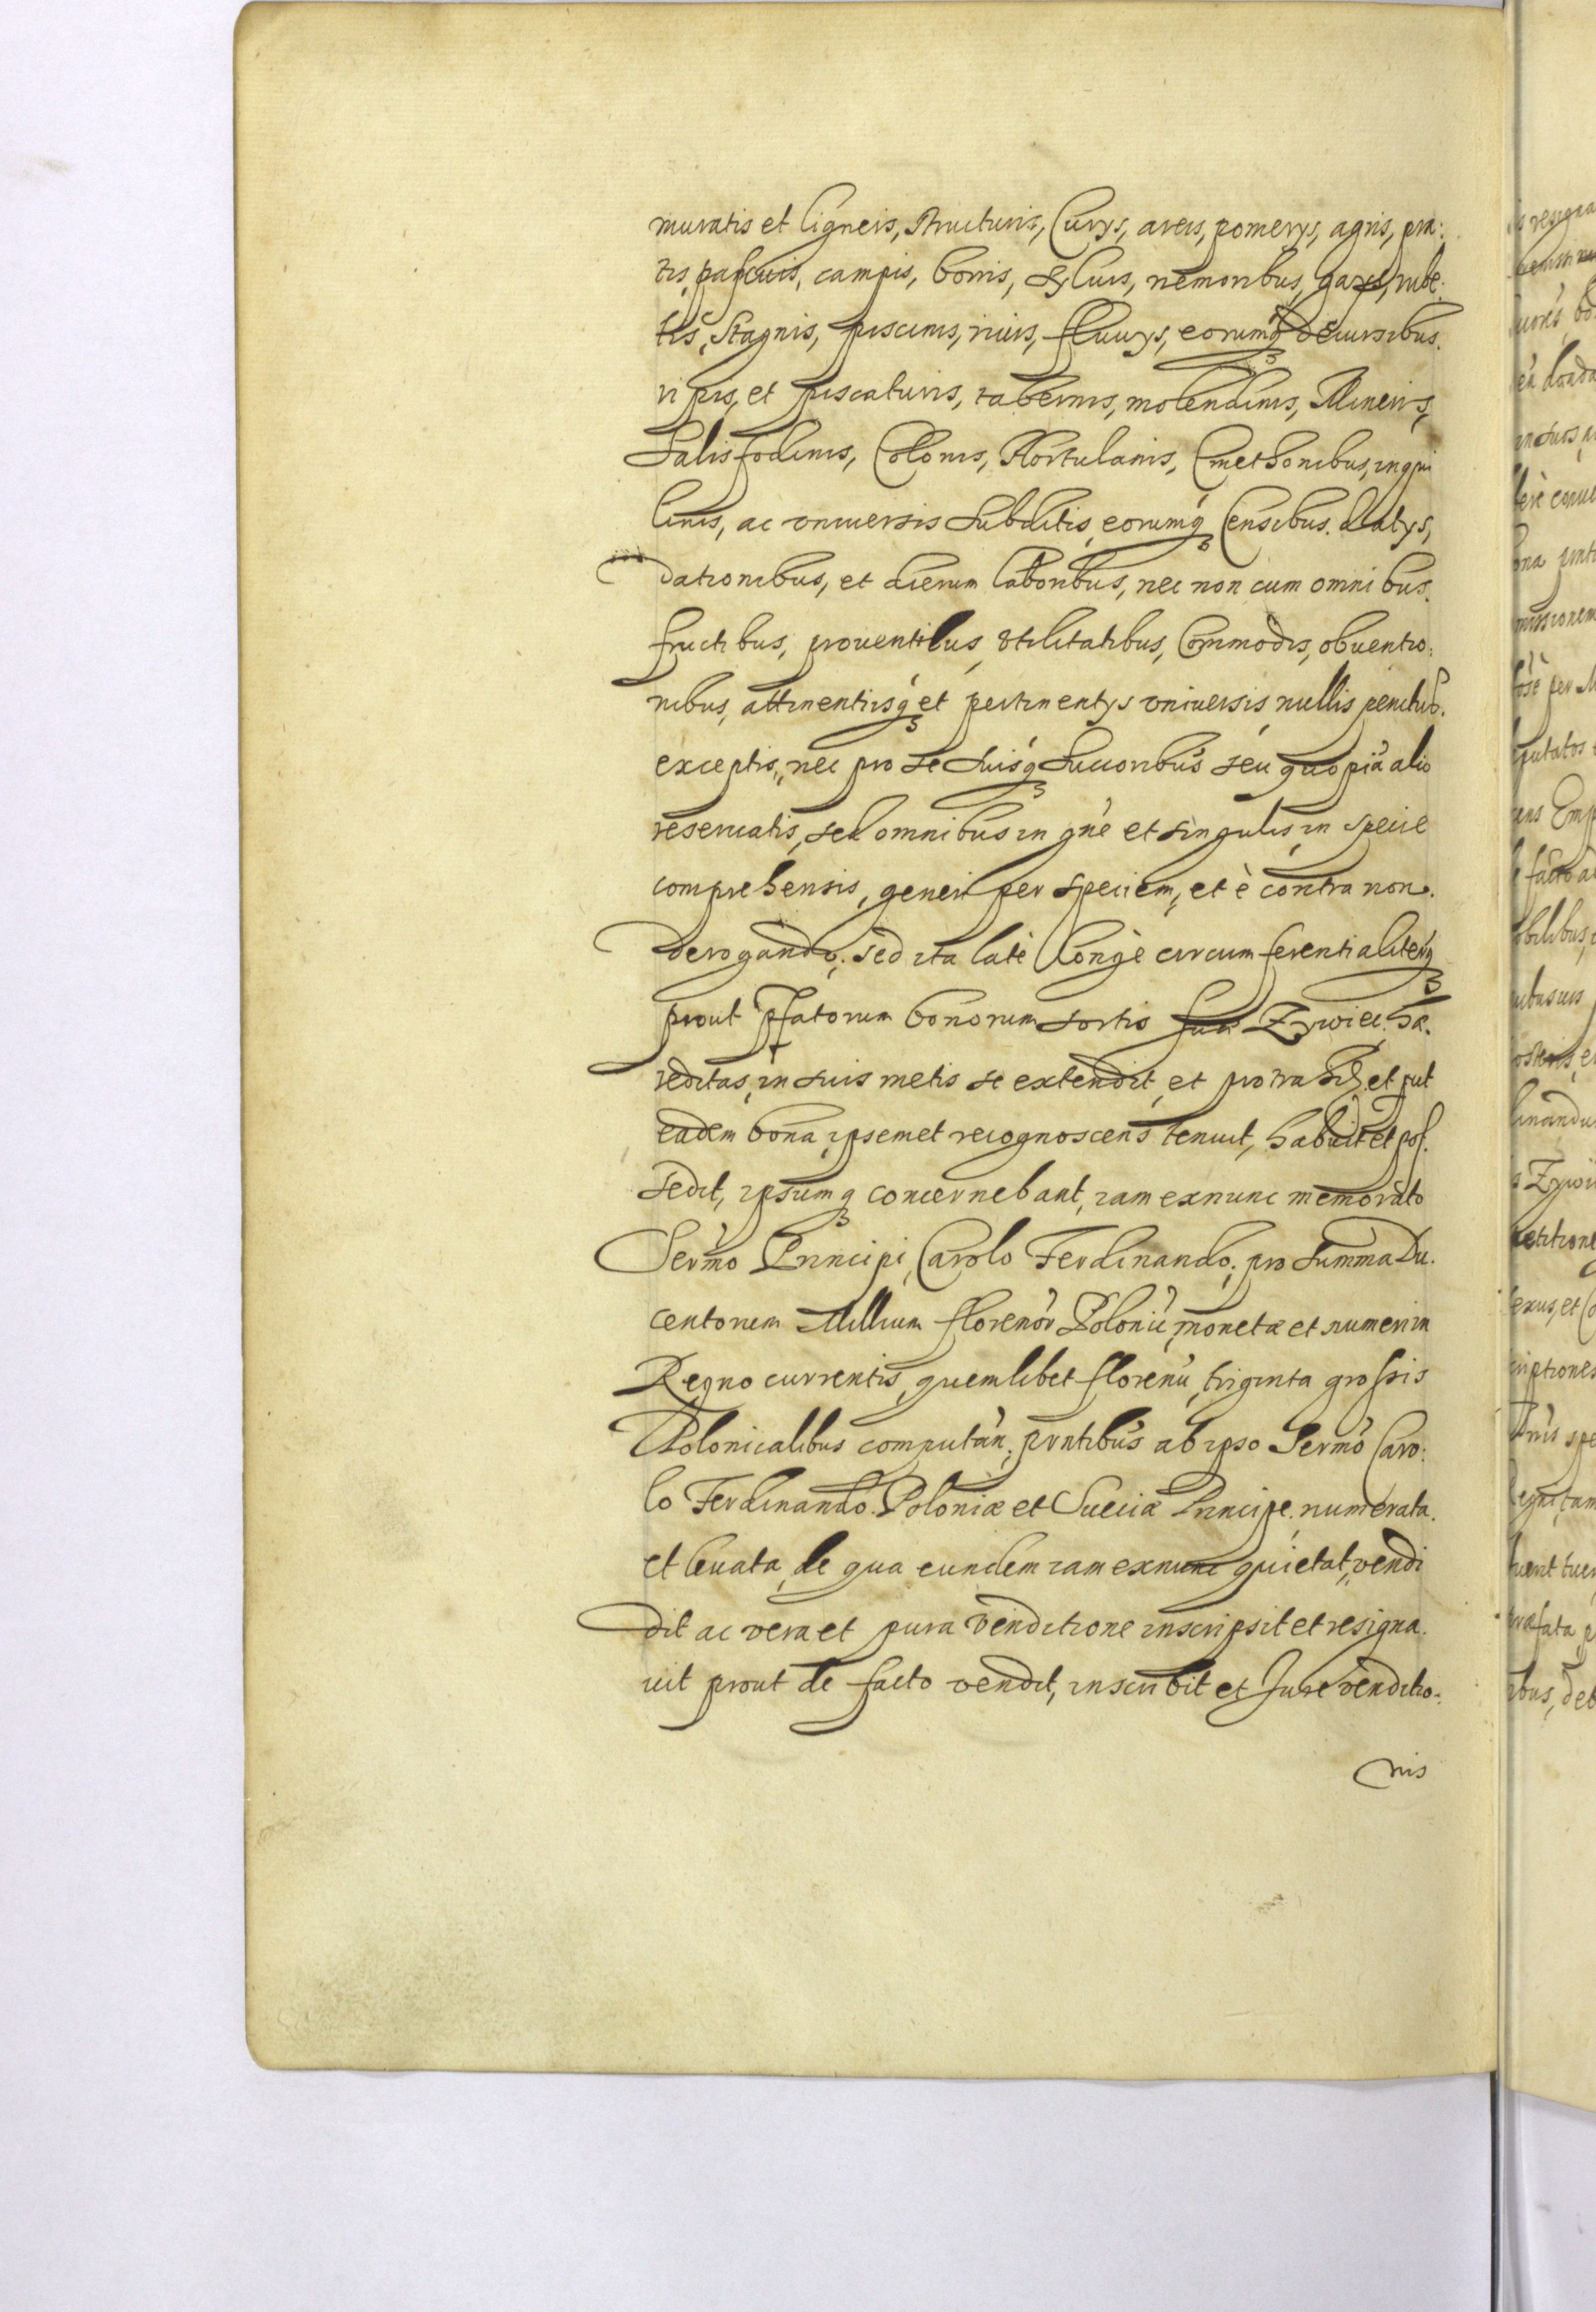 muratis et ligneis, structuris, Curys, areis, pomerys, agris, pra:
tis, pascuis, campis, borris, sylvis, nemoribus, gays, rube:
tis, Stagnis, piscinis, rivis, fluuys, eorumq decursibus.
ripis, et piscaturis, tabernis, molendinis, Mineris,
Salisfodinis, Colonis, Hortulanis, Cmethonibus, inqui
linis, ac vniuersis Subditis, eorumq Censibus. datys,
dationibus, et dierum laboribus, nec non cum omnibus.
fructibus, prouentibus, vtilitatibus, Commodis, obuentio:
nibus, attinentiisq et pertinentys vniuersis, nullis penitus.
exceptis, nec pro se suisq Succoribus seu quopiã alio
reseruatis, sed omnibus in gńe et singulis, in specie
comprehensis, generi per speciem, et è contra non.
derogando; sed ita latè longè circumferentialiterq
prout pfatorum bonorum sortis suæ Zywiec. hæ.
reditas, in suis metis se extendit, et protrahit, et put
eadem bona, ipsemet recognoscens tenuit, habuit et pos.
sedit, ipsumq concernebant, iam exnunc memorato
Sermo Principi, Carolo Ferdinando; pro summa Du.
centorum Millium florenor Polonic, monetæ et numeri in
Regno currentis, quemlibet florenũ, triginta grossis
Polonicalibus computan; prntibus ab ipso Sermo Caro:
lo Ferdinando. Poloniæ et Sueciæ Principe. numerata.
et leuata, de qua eundem iam exnunc quietat, vendi
dit ac vera et pura venditione inscripsit et resigna.
uit prout de facto vendit, inscribit et Jure venditio:
nis